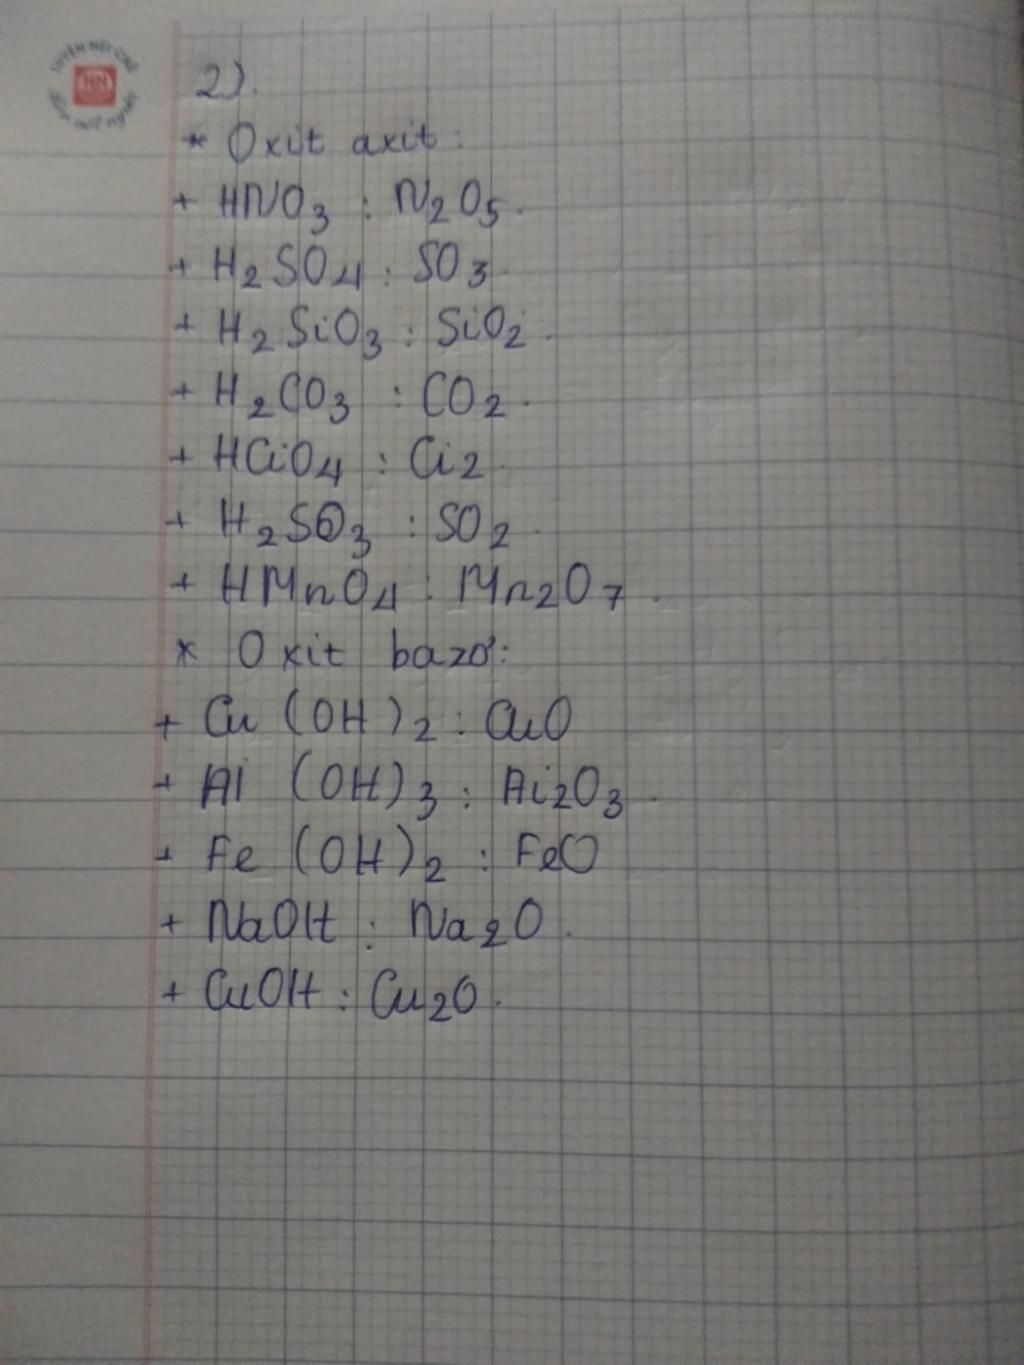 2).
* Oxit axit:
+ HNO3 : N2O5.
+ H2SO4 : SO3
+ H2SiO3 : SiO2.
+ H2CO3 : CO2.
+ HCiO4 : Ci2
+ H2SO3 : SO2
+ HMnO4 : Mn2O7.
* Oxit bazơ:
+ Cu (OH)2 : CuO
+ Al (OH)3 : Ai2O3.
+ Fe (OH)2 : FeO
+ NaOH : Na2O.
+ CuOH : Cu2O.